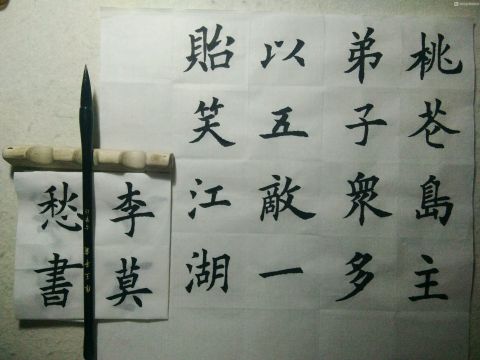 桃花島主
弟子眾多
以五敵一
貽笑江湖
李莫
愁書